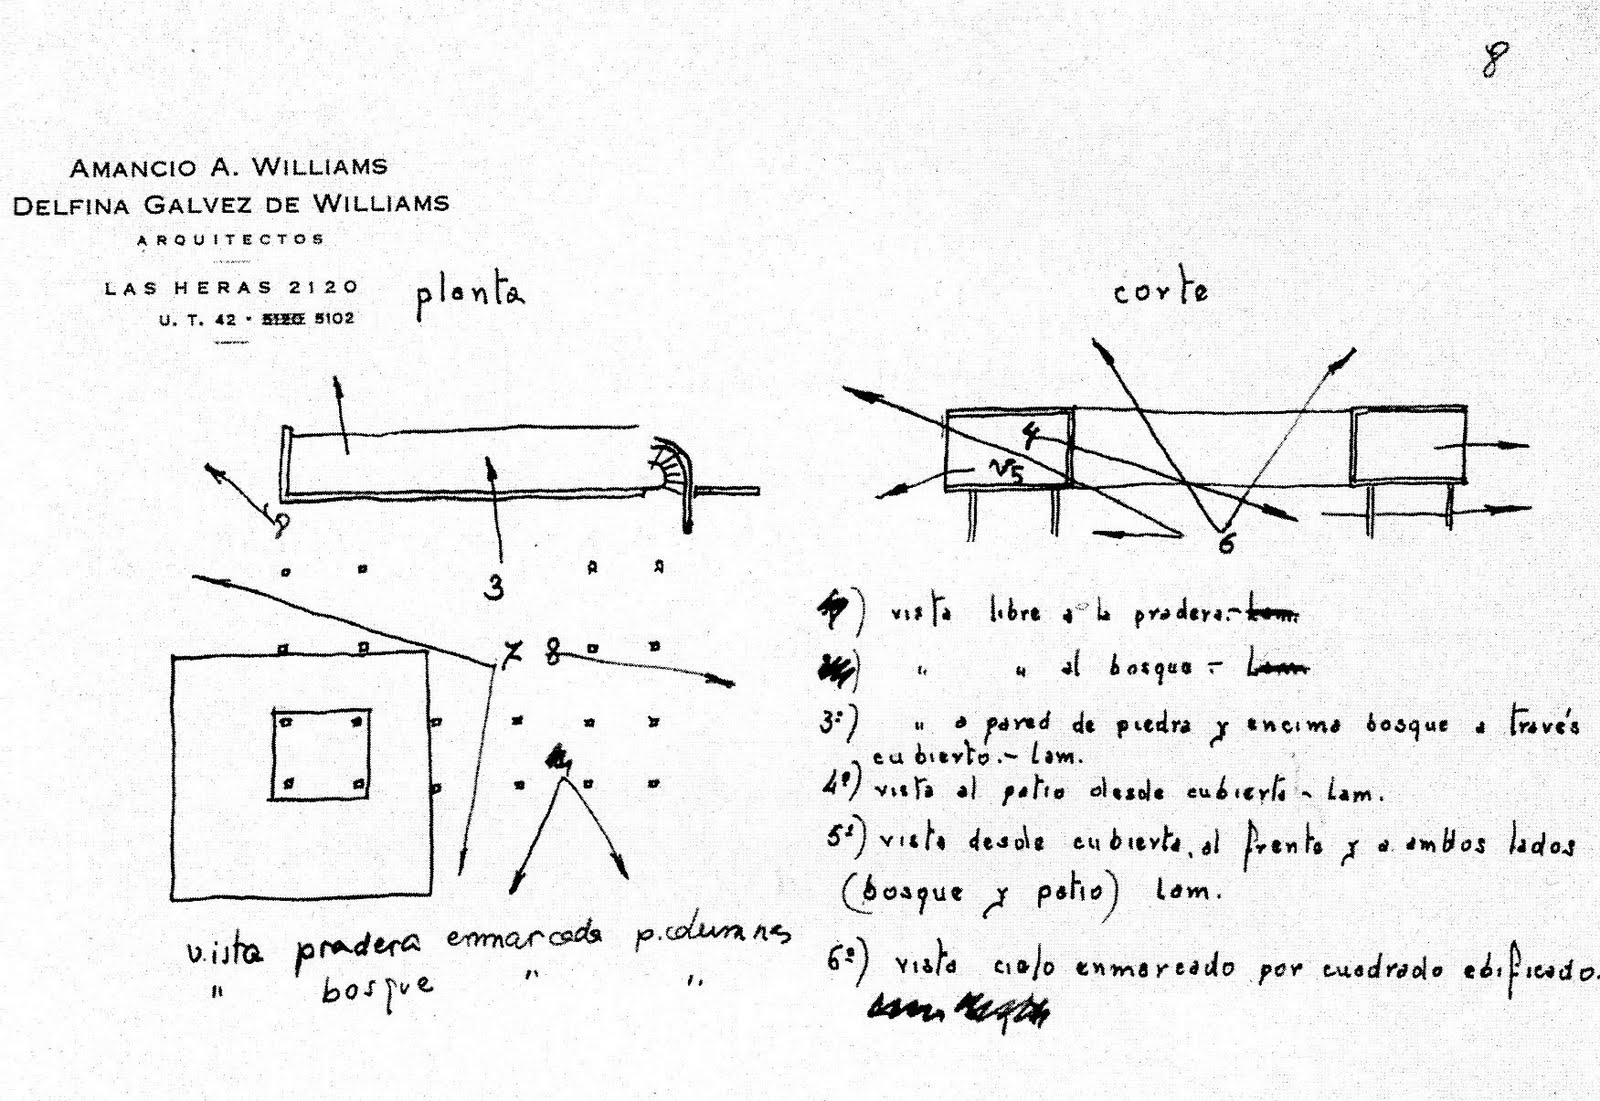 8
AMANCIO A. WILLIAMS
DELFINA GALVEZ DE WILLIAMS
ARQUITECTOS
LAS HERAS 2120
U. T. 42 - 5120 5102
planta
corte
4
5
3
6
7 8
vista libre a la pradera.- Lam.
" " al bosque.- Lam
3º) " a pared de piedra y encima bosque a través
cubierto.- Lam.
4º) vista al patio desde cubierta - Lam.
5º) vista desde cubierta, al frente y a ambos lados
(bosque y patio) Lam.
6º) vista cielo enmarcado por cuadrado edificado.
vista pradera enmarcada p. columnas
" bosque " "